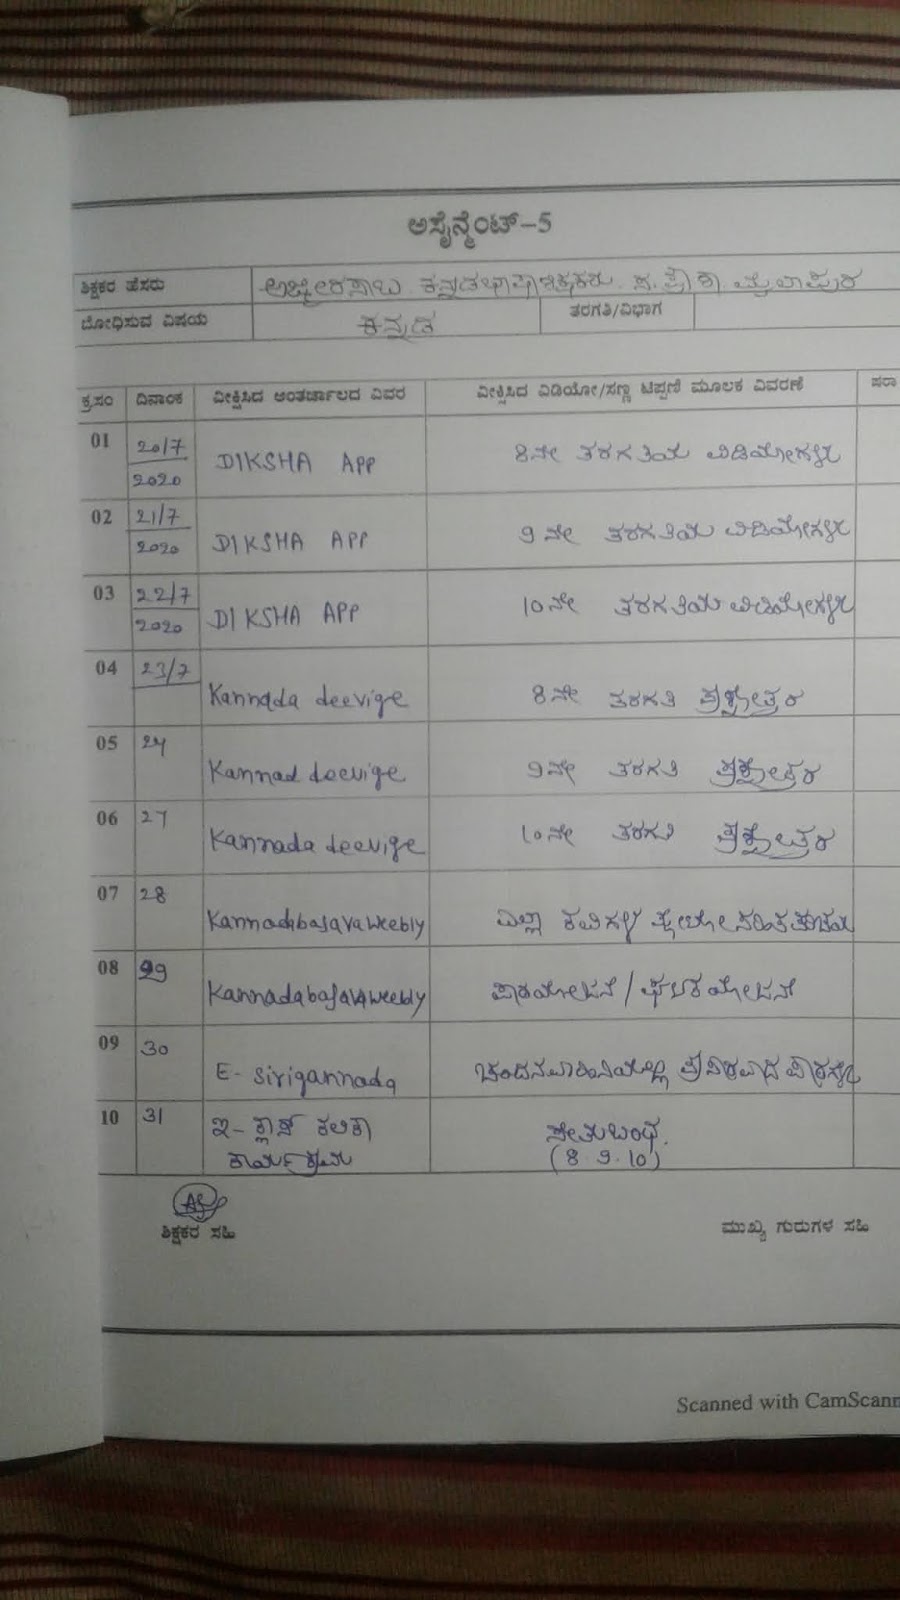 ಅಸೈನ್ಮೆಂಟ್-5
ಶಿಕ್ಷಕರ ಹೆಸರು ಅಜ್ಮೀರಸಾಬ ಕನ್ನಡಭಾಷಾಶಿಕ್ಷಕರು ಸ.ಪ್ರೌ ಶಾ
ಬೋಧಿಸುವ ವಿಷಯ ಕನ್ನಡ ತರಗತಿ/ವಿಭಾಗ
ಕ್ರ.ಸಂ ದಿನಾಂಕ ವೀಕ್ಷಿಸಿದ ಅಂತರ್ಜಾಲದ ವಿವರ ವೀಕ್ಷಿಸಿದ ವಿಡಿಯೋ/ಸಣ್ಣ ಟಿಪ್ಪಣಿ ಮೂಲಕ ವಿವರಣೆ ಷರಾ
01 20/7 2020 DIKSHA APP 8ನೇ ತರಗತಿಯ ವಿಡಿಯೋಗಳು
02 21/7 2020 DIKSHA APP 9ನೇ ತರಗತಿಯ ವಿಡಿಯೋಗಳು
03 22/7 2020 DIKSHA APP 10ನೇ ತರಗತಿಯ ವಿಡಿಯೋಗಳು
04 23/7 Kannada deevige 8ನೇ ತರಗತಿ ಪ್ರಶ್ನೋತ್ತರ
05 24 Kannad deevige 9ನೇ ತರಗತಿ ಪ್ರಶ್ನೋತ್ತರ
06 27 Kannada deevige 10ನೇ ತರಗತಿ ಪ್ರಶ್ನೋತ್ತರ
07 28 Kannadabasavaweebly ಎಲ್ಲಾ ಕವಿಗಳ
08 29 Kannadabasavaweebly ಪಾಠಯೋಜನೆ / ಘಟಕಯೋಜನೆ
09 30 E- sirigannada ಚಂದನವಾಹಿನಿಯಲ್ಲಿ ಪ್ರಸಾರವಾದ ಪಾಠಗಳು
10 31 ಇ- ಕ್ಲಾಸ್ ಕಲಿಕಾ ಸೇತುಬಂಧ.
ಕಾರ್ಯಕ್ರಮ (8 9.10)
ಶಿಕ್ಷಕರ ಸಹಿ ಮುಖ್ಯ ಗುರುಗಳ ಸಹಿ
Scanned with CamScann